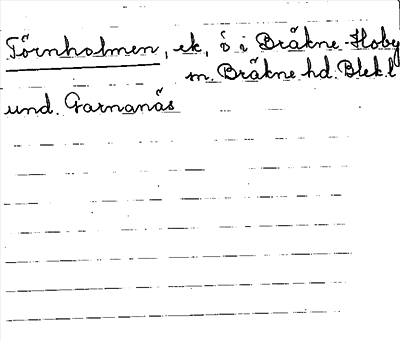 Törnholmen, ek, ö i Bräkne-Hoby
m. Bräkne hd. Blek. l
und. Garnanäs